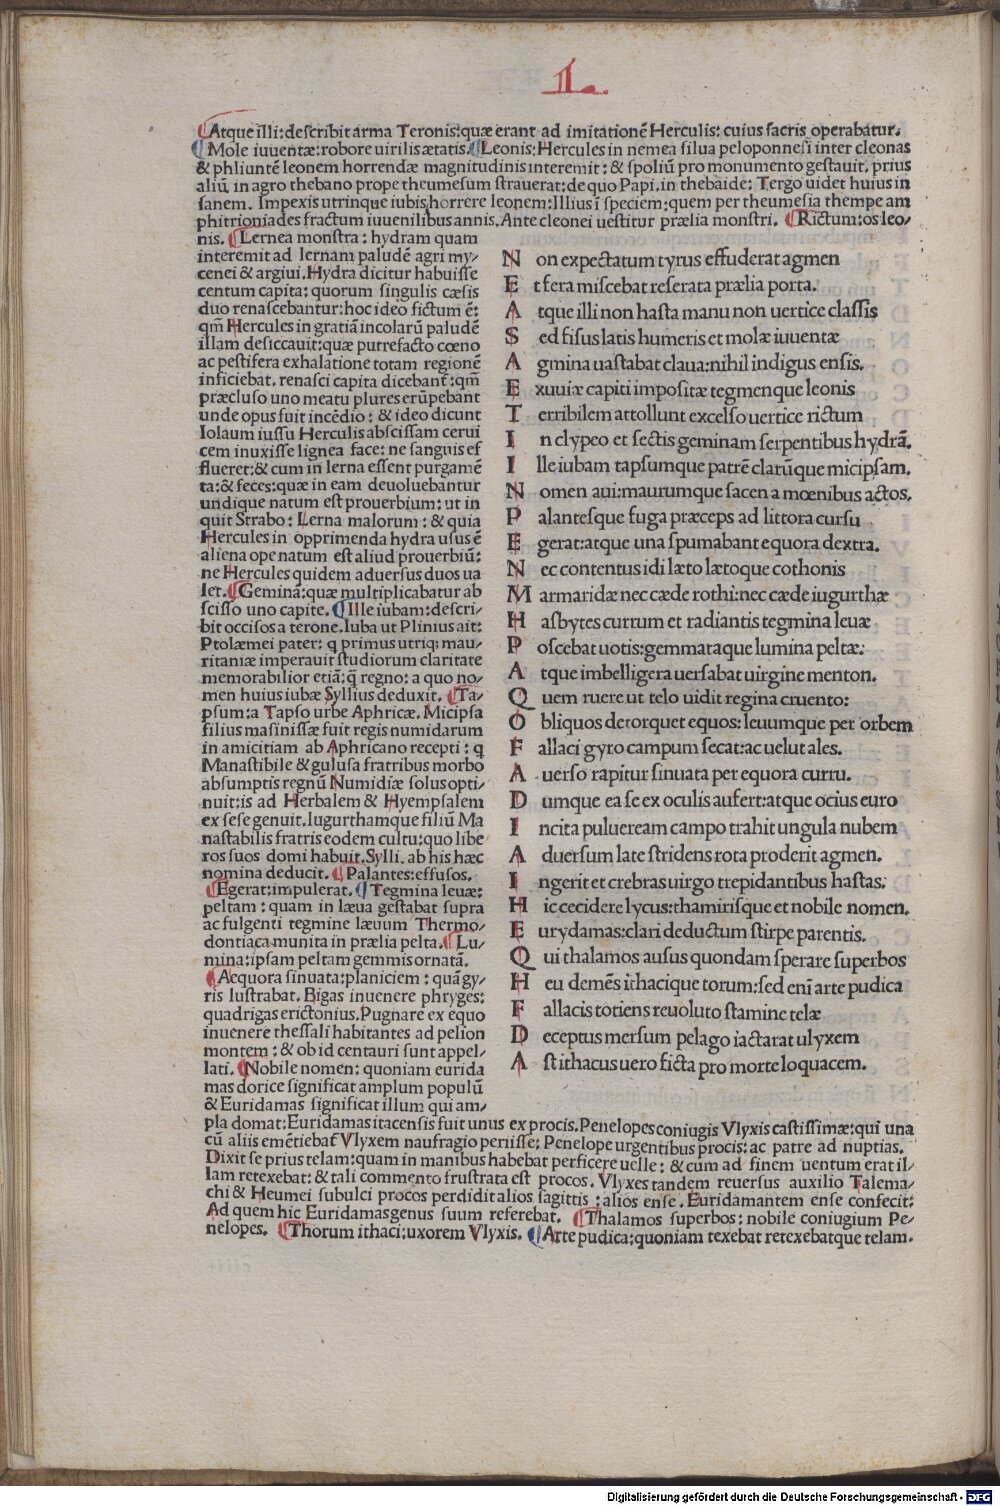 II.
Atque illi:describit arma Teronis:quæ erant ad imitationē Herculis: cuius sacris operabatur.
Mole iuuentæ:robore uirilis ætatis.Leonis:Hercules in nemea silua peloponnesi inter cleonas
& phliuntē leonem horrendæ magnitudinis interemit: & spoliū pro monumento gestauit. prius
aliū in agro thebano prope theumesum strauerat:de quo Papi.in thebaide: Tergo uidet huius in
sanem. Impexis utrinque iubis horrere leonem:Illius ī speciem:quem per theumesia thempe am
phitrioniades fractum iuuenilibus annis.Ante cleonei uestitur prælia monstri. Rictum:os leo/
nis. Lernea monstra: hydram quam
interemit ad lernam paludē agri my/
cenei & argiui.Hydra dicitur habuisse
centum capita: quorum singulis cæsis
duo renascebantur:hoc ideo fictum ē:
qm̄ Hercules in gratiā incolarū paludē
illam desiccauit:quæ putrefacto cœno
ac pestifera exhalatione totam regionē
inficiebat. renasci capita dicebant̄:qm̄
præcluso uno meatu plures erūpebant
unde opus fuit incēdio: & ideo dicunt
Iolaum iussu Herculis abscissam cerui
cem inuxisse lignea face: ne sanguis ef
flueret:& cum in lerna essent purgamē
ta:& feces:quæ in eam deuoluebantur
undique natum est prouerbium: ut in
quit Strabo: Lerna malorum: & quia
Hercules in opprimenda hydra usus ē
aliena ope natum est aliud prouerbiū:
ne Hercules quidem aduersus duos ua
let.Geminā:quæ multiplicabatur ab
scisso uno capite.Ille iubam:descri/
bit occisos a terone.Iuba ut Plinius ait:
Ptolæmei pater: q primus utriq; mau/
ritaniæ imperauit studiorum claritate
memorabilior etiā:q̄ regno: a quo no/
men huius iubæ Syllius deduxit. Ta/
psum:a Tapso urbe Aphricæ. Micipsa
filius masinissæ fuit regis numidarum
in amicitiam ab Aphricano recepti: q
Manastibile & gulusa fratribus morbo
absumptis regnū Numidiæ solus opti/
nuit:is ad Herbalem & Hyempsalem
ex sese genuit.Iugurthamque filiū Ma
nastabilis fratris eodem cultu:quo libe
ros suos domi habuit.Sylli. ab his hæc
nomina deducit. Palantes:effusos.
Egerat:impulerat. Tegmina leuæ:
peltam: quam in læua gestabat supra
ac fulgenti tegmine læuum Thermo/
dontiaca munita in prælia pelta.Lu/
mina:ipsam peltam gemmis ornatā.
Aequora sinuata:planiciem: quā gy/
ris lustrabat. Bigas inuenere phryges:
quadrigas erictonius.Pugnare ex equo
inuenere thessali habitantes ad pelion
montem: & ob id centauri sunt appel/
lati. Nobile nomen: quoniam eurida
mas dorice significat amplum populū
& Euridamas significat illum qui am/
N on expectatum tyrus effuderat agmen
E t fera miscebat reserata prælia porta.
A tque illi non hasta manu non uertice classis
S ed fisus latis humeris et molæ iuuentæ
A gmina uastabat claua:nihil indigus ensis.
E xuuiæ capiti impositæ tegmenque leonis
T erribilem attollunt excelso uertice rictum
I n clypeo et sectis geminam serpentibus hydrā.
I lle iubam tapsumque patrē clarūque micipsam.
N omen aui:maurumque sacen a mœnibus actos.
P alantesque fuga præceps ad littora cursu
E gerat:atque una spumabant equora dextra.
N ec contentus idi læto lætoque cothonis
M armaridæ nec cæde rothi:nec cæde iugurthæ
H asbytes currum et radiantis tegmina leuæ
P oscebat uotis:gemmataque lumina peltæ:
A tque imbelligera uersabat uirgine menton.
Q uem ruere ut telo uidit regina cruento:
O bliquos detorquet equos:leuumque per orbem
F allaci gyro campum secat:ac uelut ales.
A uerso rapitur sinuata per equora curru.
D umque ea se ex oculis aufert:atque ocius euro
I ncita puluream campo trahit ungula nubem
A duersum late stridens rota proderit agmen.
I ngerit et crebras uirgo trepidantibus hastas:
H ic cecidere lycus:thamirisque et nobile nomen.
E urydamas:clari deductum stirpe parentis.
Q ui thalamos ausus quondam sperare superbos
H eu demēs ithacique torum:sed enī arte pudica
F allacis totiens reuoluto stamine telæ
D eceptus mersum pelago iactarat ulyxem
A st ithacus uero ficta pro morte loquacem.
pla domat:Euridamas itacensis fuit unus ex procis.Penelopes coniugis Vlyxis castissimæ:qui una
cū aliis emētiebat̄ Vlyxem naufragio periisse: Penelope urgentibus procis: ac patre ad nuptias.
Dixit se prius telam:quam in manibus habebat perficere uelle: & cum ad finem uentum erat il/
lam retexebat: & tali commento frustrata est procos. Vlyxes tandem reuersus auxilio Talema/
chi & Heumei subulci procos perdidit alios sagittis: alios ense. Euridamantem ense confecit:
Ad quem hic Euridamas genus suum referebat. Thalamos superbos: nobile coniugium Pe/
nelopes. Thorum ithaci:uxorem Vlyxis. Arte pudica:quoniam texebat retexebatque telam.
Digitalisierung gefördert durch die Deutsche Forschungsgemeinschaft - DFG